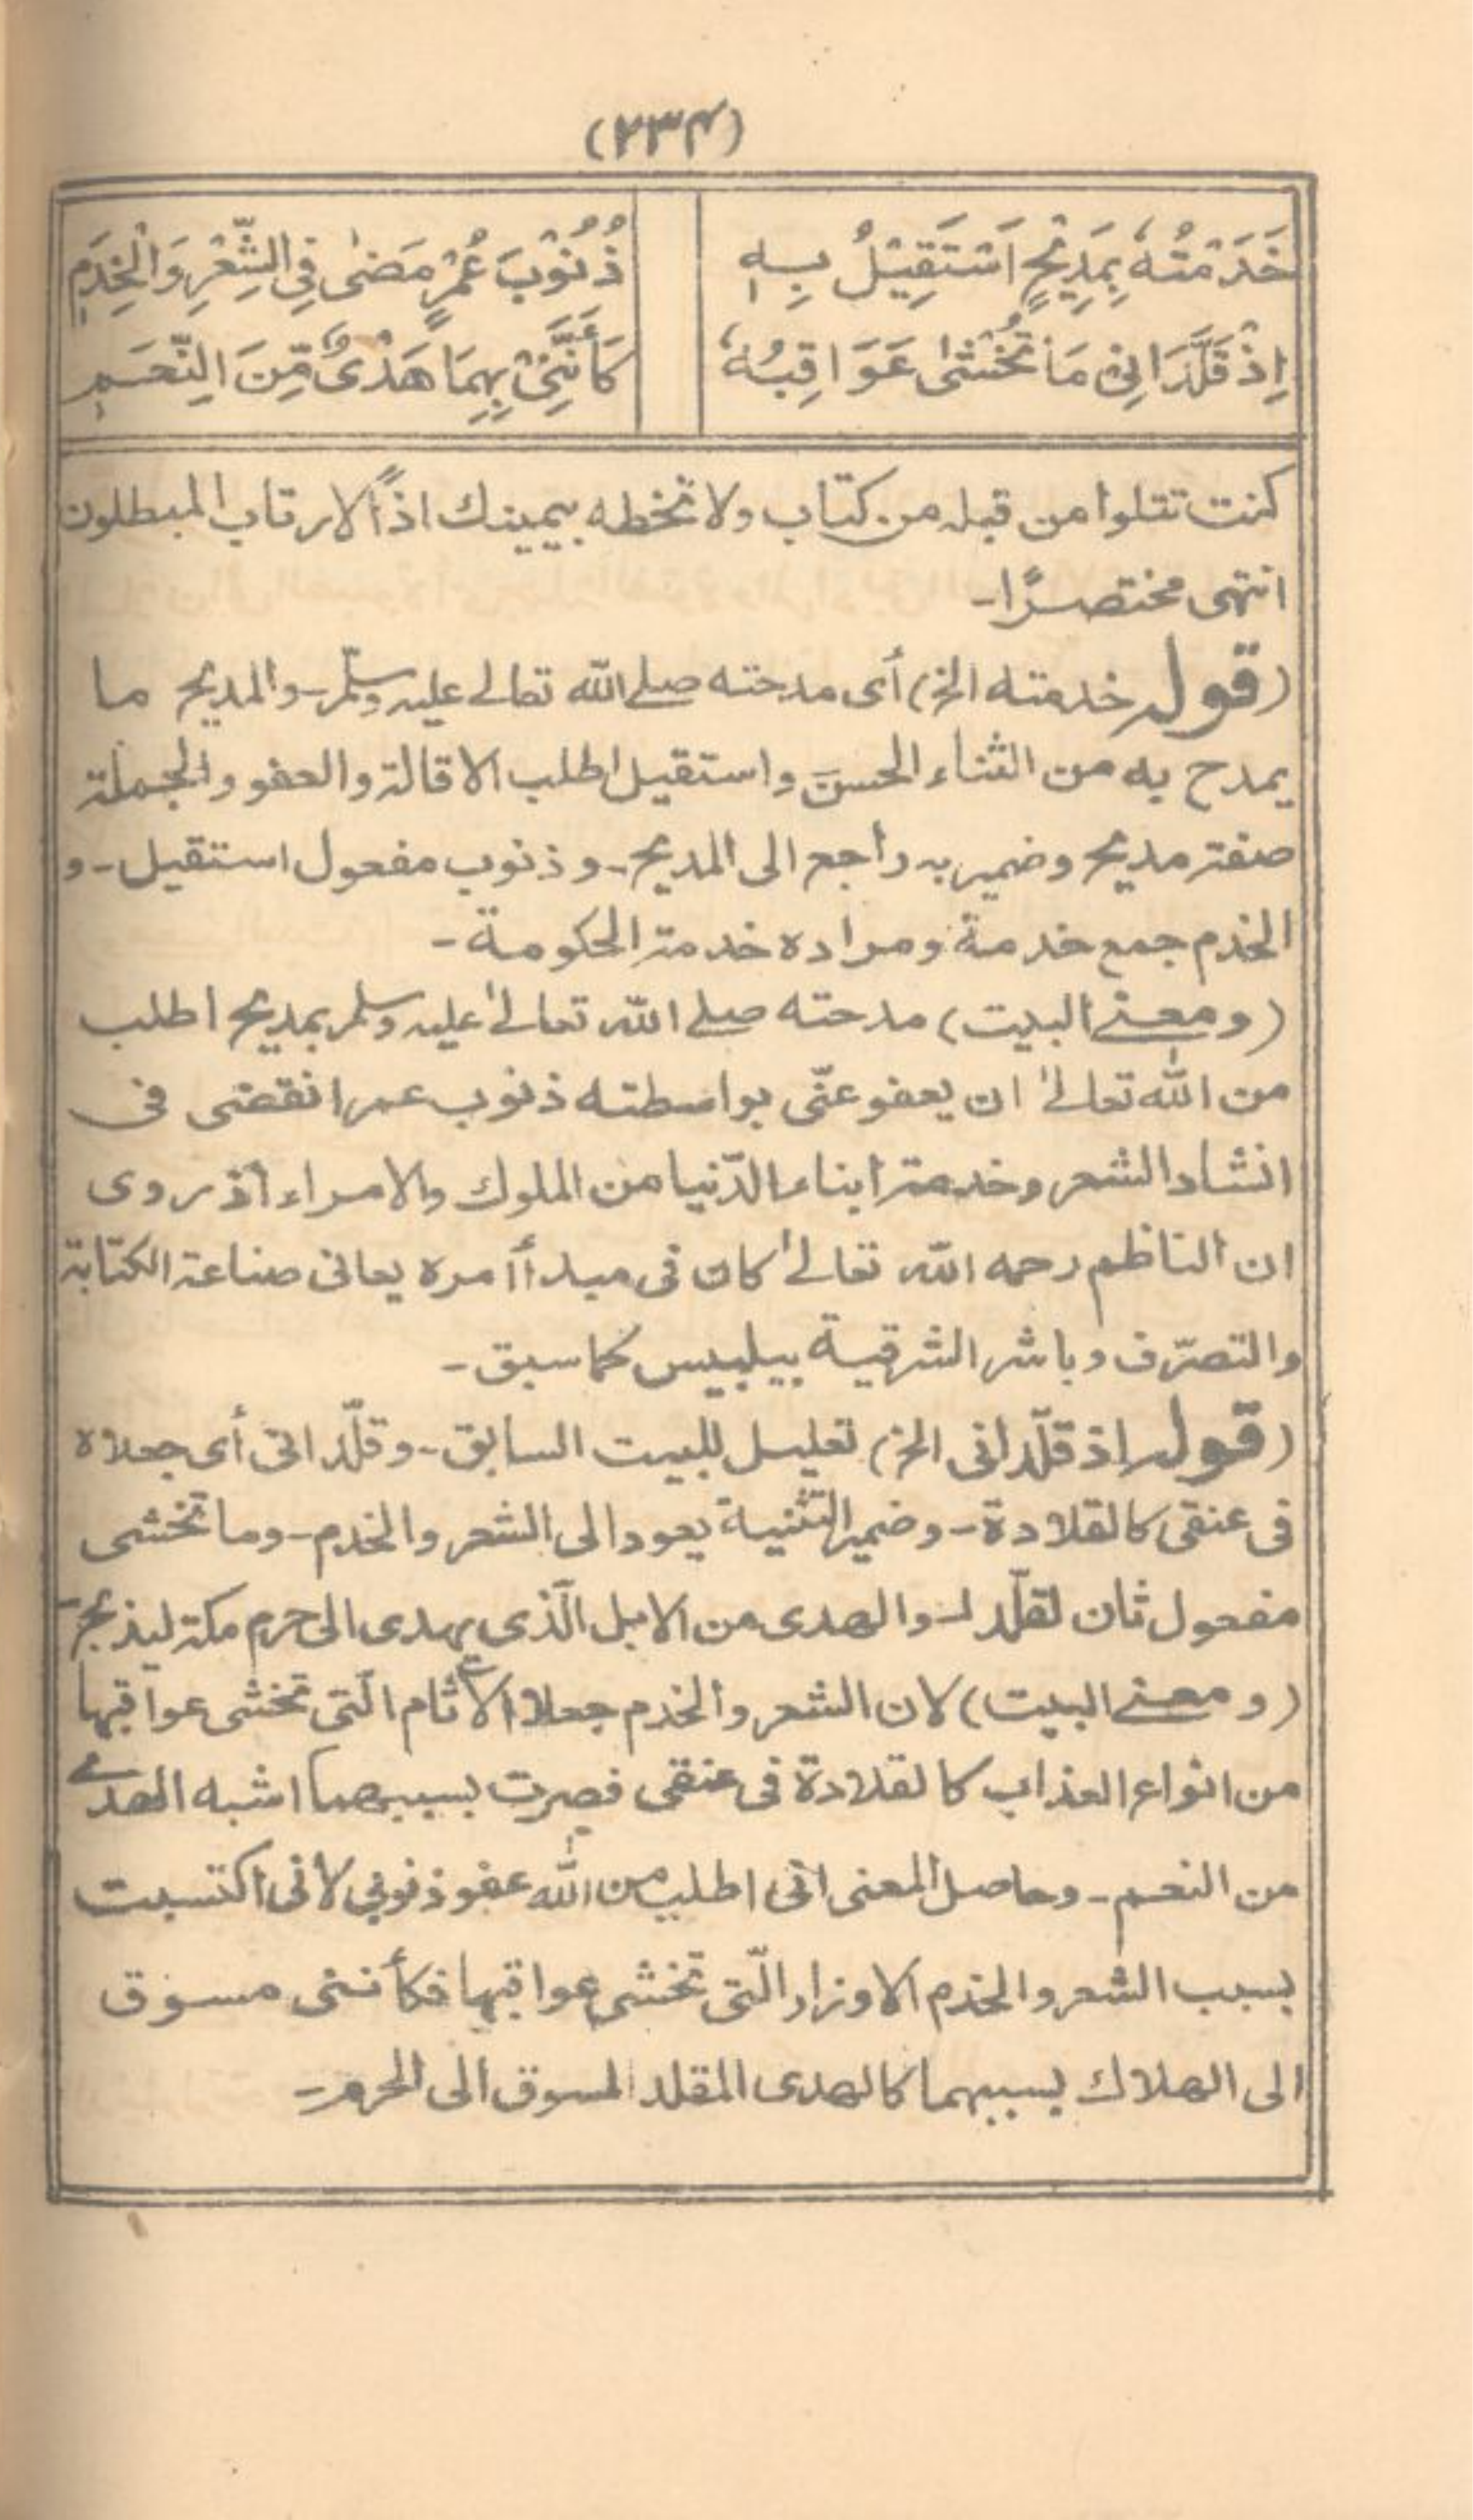 (٢٣٤)
خَدَمْتُهٗ بِمَدِيْحٍ اَسْتَقِيْلُ بِهٖ ذُنُوْبَ عُمْرٍ مَضٰى فِي الشِّعْرِ وَالْخِدَمِ
اِذْ قَلَّدَانِيْ مَا تُخْشٰى عَوَاقِبُهٗ كَأَنَّنِيْ بِهِمَا هَدْىٌ مِّنَ النِّعَمِ
كنت تتلوا من قبله من كتاب ولا تخطه بيمينك اذاً لارتاب المبطلون
انتهى مختصرًا-
(قوله خدمته الخ) أى مدحته صلے الله تعالے عليه وسلّم- والمديح ما
يمدح به من الثناء الحسن واستقيل اطلب الاقالة والعفو والجملة
صفة مديح وضمير به راجع الى المديح- وذنوب مفعول استقيل- و
الخدم جمع خدمة ومراده خدمة الحكومة-
(ومعنے البيت) مدحته صلے الله تعالےٰ عليه وسلم بمديح اطلب
من الله تعالےٰ ان يعفو عنّى بواسطته ذنوب عمر انقضى فى
انشاد الشعر وخدمة ابناء الدّنيا من الملوك والامراء اذ روى
ان الناظم رحمه الله تعالےٰ كان فى مبدأ أمره يعانى صناعة الكتابة
والتصرّف وباشر الشرقية ببلبيس كما سبق-
(قوله اذ قلّدانى الخ) تعليل للبيت السابق- وقلّدانى أى جعلاه
فى عنقى كالقلادة- وضمير التثنية يعود الى الشعر والخدم- وما تخشى
مفعول ثان لقلّد- والهدى من الابل الّذي يهدى الى حرم مكة ليذبح-
(ومعنے البيت) لان الشعر والخدم جعلا الآثام الّتى تخشى عواقبها
من انواع العذاب كالقلادة فى عنقى فصرت بسببهما اشبه الهدے
من النعم- وحاصل المعنى انى اطلب من الله عفو ذنوبي لانى اكتسبت
بسبب الشعر والخدم الاوزار الّتى تخشى عواقبها فكأننى مسوق
الى الهلاك بسببهما كالهدى المقلد المسوق الى الحرم-